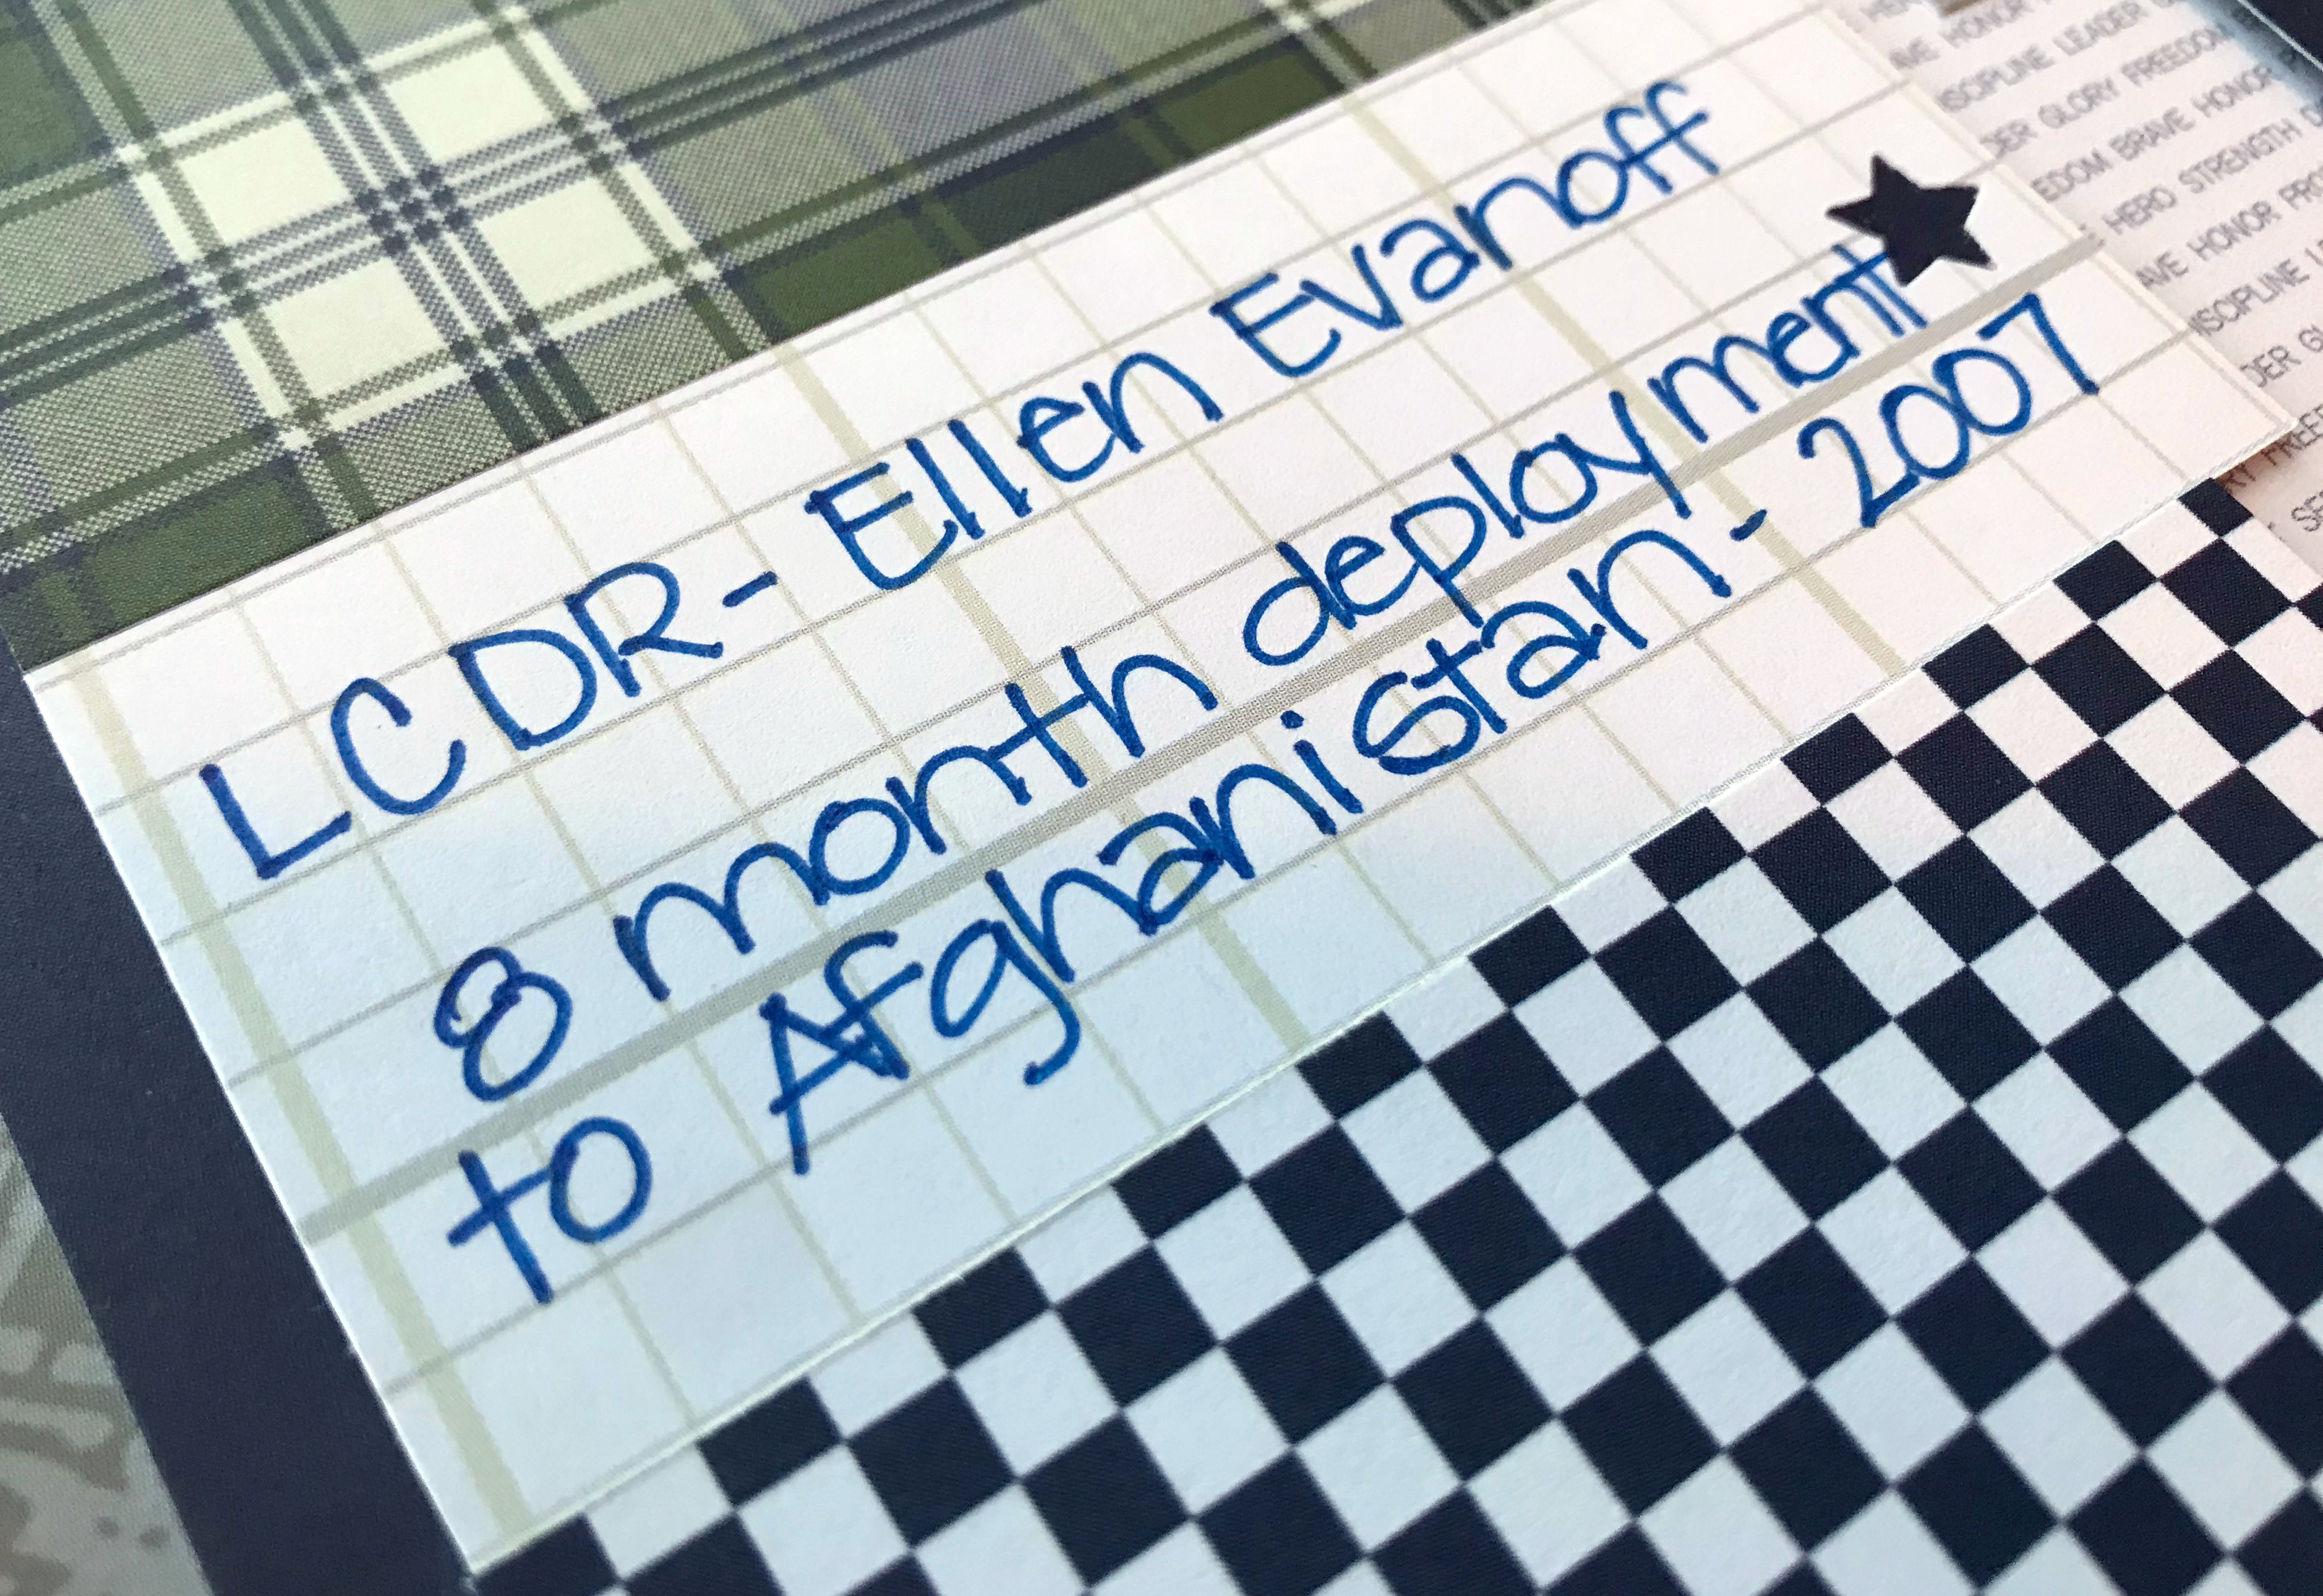 LCDR- Ellen Evanoff
8 month deployment
to Afghanistan - 2007
AVE HONOR
DISCIPLINE LEADER
DER GLORY FREEDOM
EDOM BRAVE HONOR
HERO STRENGTH
AVE HONOR
DISCIPLINE
DER